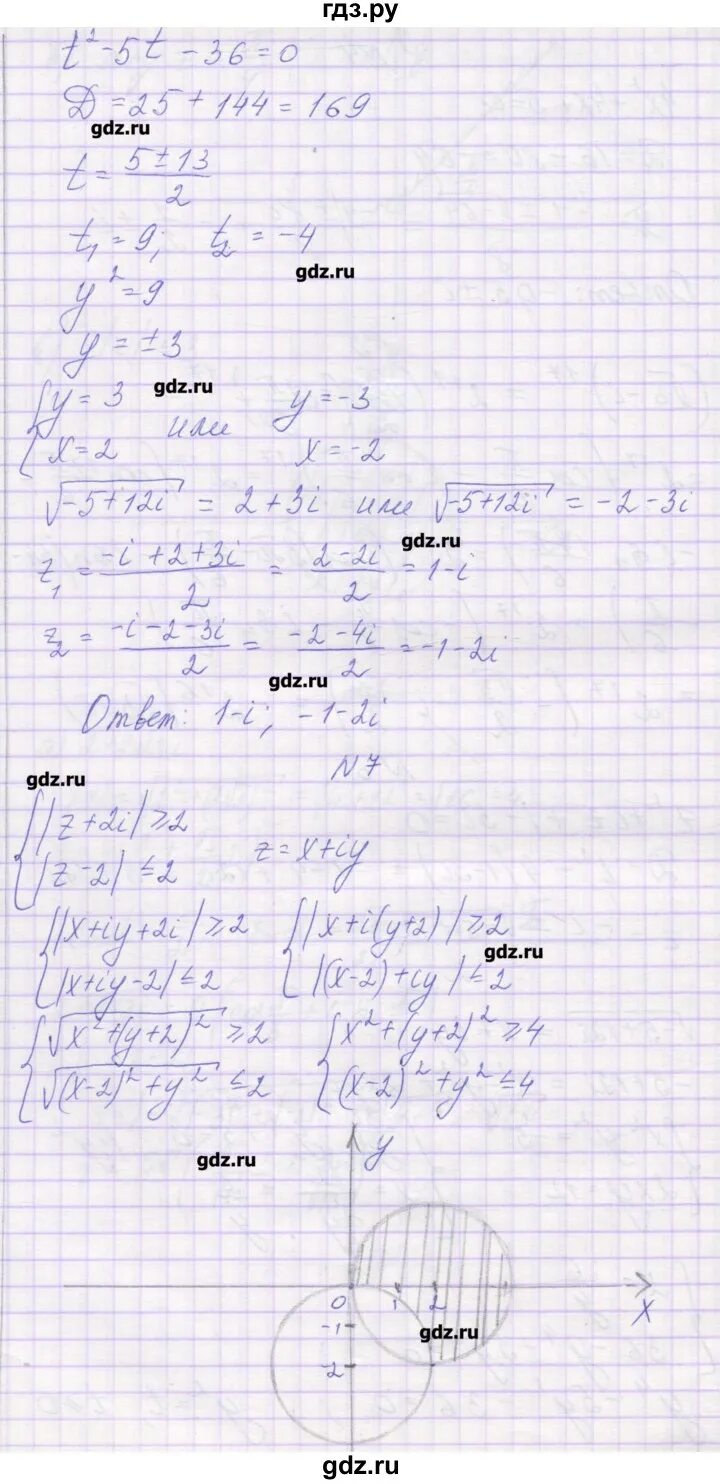 гдз.ру
t² - 5t - 36 = 0
D = 25 + 144 = 169
gdz.ru
t = (5 ± 13)/2
t₁ = 9; t₂ = -4
gdz.ru
y² = 9
y = ±3
gdz.ru
{y = 3 или y = -3
x = 2 x = -2
√(-5+12i) = 2+3i или √(-5+12i) = -2-3i
gdz.ru
z₁ = (-i+2+3i)/2 = (2-2i)/2 = 1-i
z₂ = (-i-2-3i)/2 = (-2-4i)/2 = -1-2i
gdz.ru
Ответ: 1-i; -1-2i
N7
gdz.ru
{|z+2i| ≥ 2
|z-2| ≤ 2 z = x+iy
{|x+iy+2i| ≥ 2 {|x+i(y+2)| ≥ 2
gdz.ru
|x+iy-2| ≤ 2 |(x-2)+iy| ≤ 2
{√(x²+(y+2)²) ≥ 2 {x²+(y+2)² ≥ 4
√((x-2)²+y²) ≤ 2 (x-2)²+y² ≤ 4
gdz.ru
y
0 1 2 x
-1
gdz.ru
-2
gdz.ru